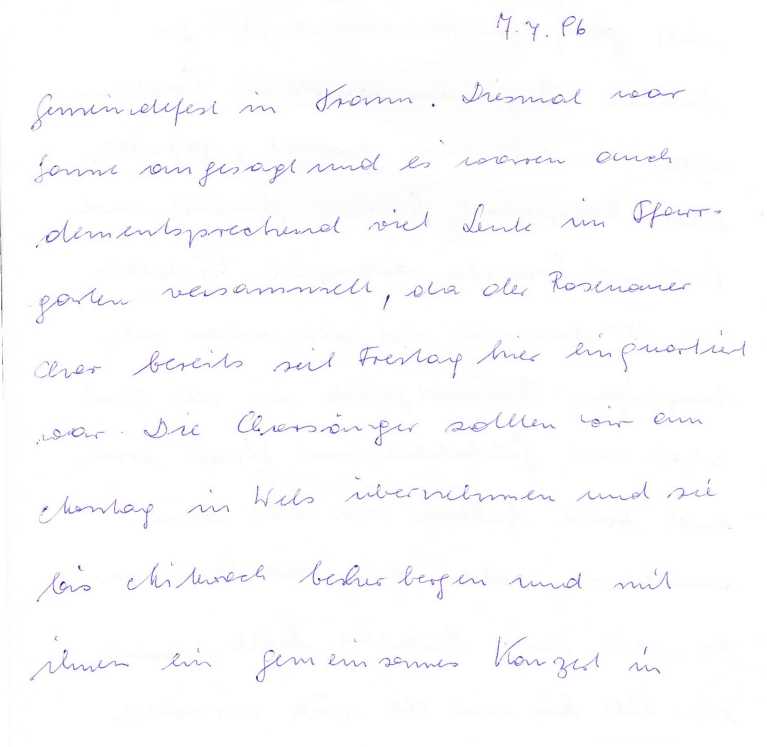 7.7.96
Gemeindefest in Traun. Diesmal war
Sonne angesagt und es waren auch
dementsprechend viel Leute im Pfarr-
garten versammelt, da der Rosenauer
Chor bereits seit Freitag hier einquartiert
war. Die Chorsänger sollten wir am
Montag in Wels übernehmen und sie
bis Mittwoch beherbergen und mit
ihnen ein gemeinsames Konzert in